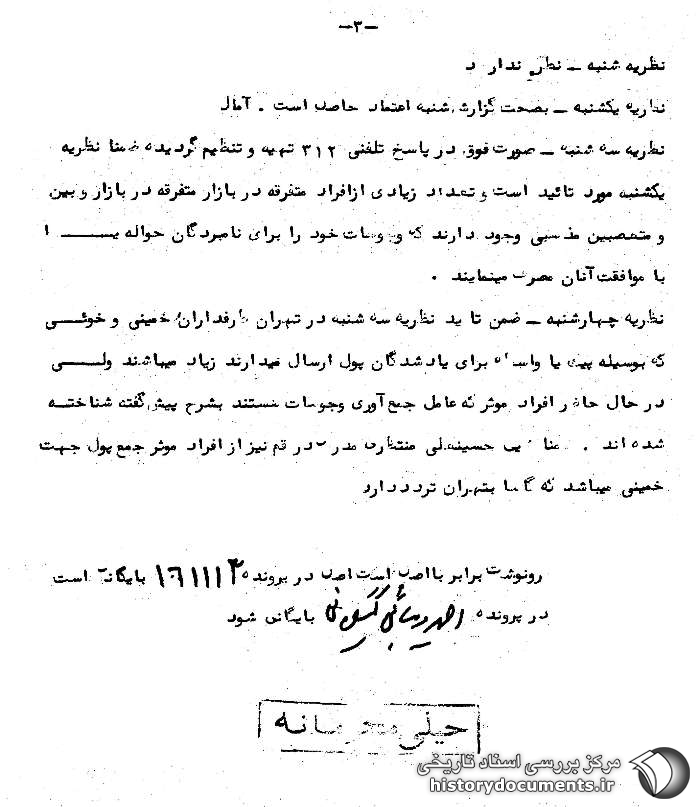 -۳-
نظریه شنبه ــ نظری ندارد
نظریه یکشنبه ــ بصحت گزارش شنبه اعتماد حاصل است . آمال
نظریه سه شنبه ــ صورت فوق در پاسخ تلفنی ۳۱۲ تهیه و تنظیم گردیده ضمنا نظریه
یکشنبه مورد تائید است و تعداد زیادی ازافراد متفرقه در بازار متفرقه در بازار و بین
و متعصبین مذهبی وجود دارند که وجوهات خود را برای نامبردگان حواله یــــا
با موافقت آنان مصرف مینمایند .
نظریه چهارشنبه ــ ضمن تایید نظریه سه شنبه در تهران طرفداران خمینی و خوئـــی
که بوسیله پیک یا واسطه برای یادشدگان پول ارسال میدارند زیاد میباشند ولـــی
در حال حاضر افراد موثر که عامل جمع آوری وجوهات هستند بشرح پیش گفته شناختــه
شده اند . ضمنا حسینعلی منتظری مدرس در قم نیز از افراد موثر جمع پول جهت
خمینی میباشد که گاها بتهران تردد دارد
رونوشت برابر با اصل است اصل در پرونده ۱۶۱۱۱۳ بایگانی است
در پرونده احمد بایگانی شود
خیلی محرمانه
مرکز بررسی اسناد تاریخی
historydocuments.ir